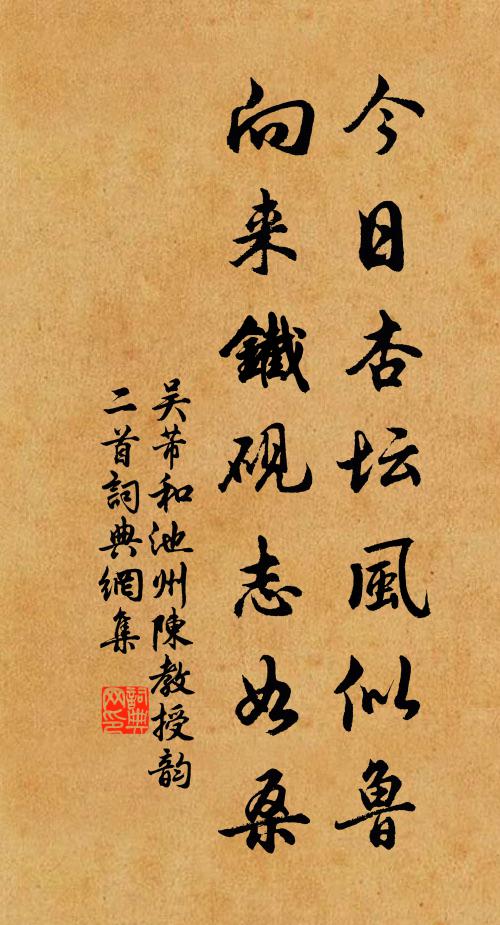 今日杏坛風似魯
向来鐵硯志如桑
吴芾和池州陳教授韵
二首詞典網集
詞典
网印